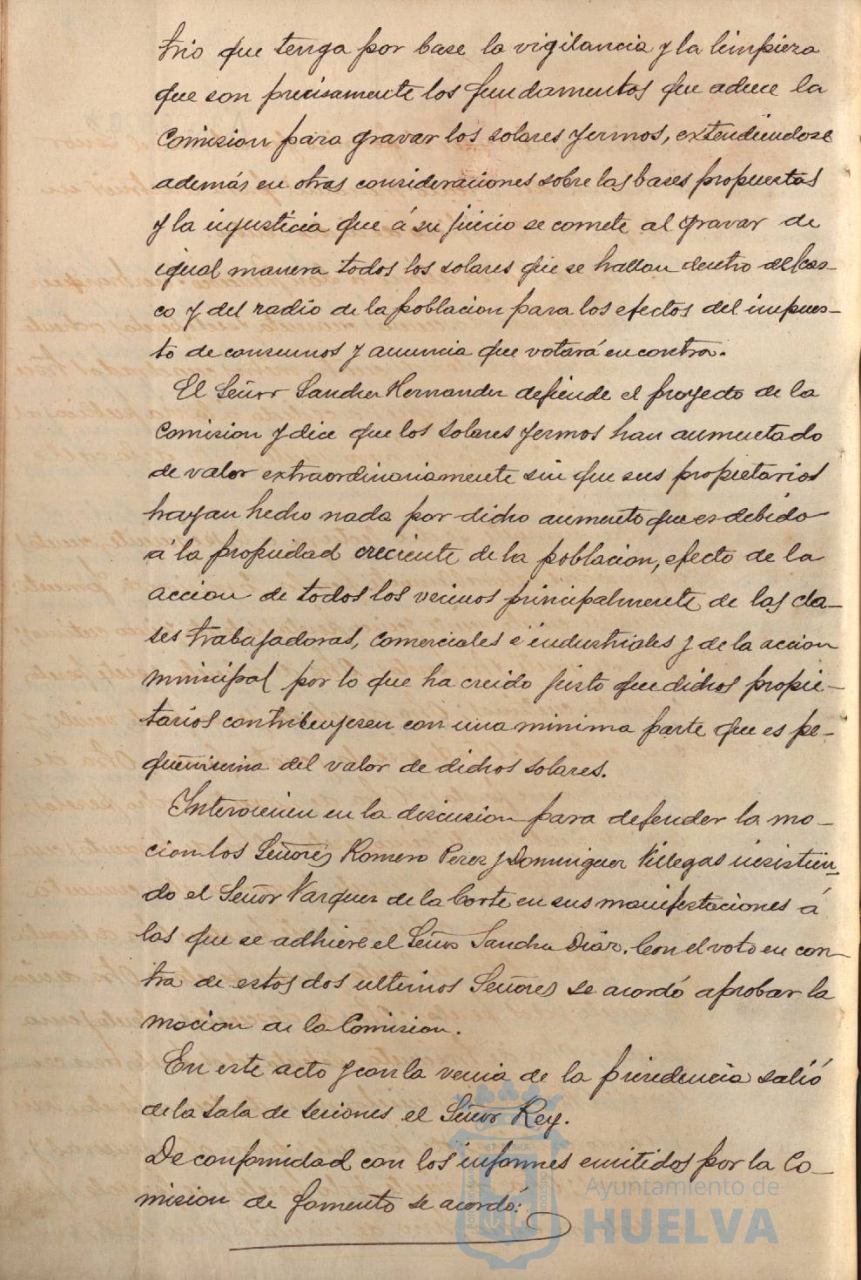 trio que tenga por base la vigilancia y la limpieza
que son precisamente los fundamentos que aduce la
Comision para gravar los solares yermos, extendiendose
además en otras consideraciones sobre las bases propuestas
y la injusticia que á su juicio se comete al gravar de
igual manera todos los solares que se hallan dentro del cas-
co y del radio de la poblacion para los efectos del impues-
to de consumos y anuncia que votará en contra.
El Señor Sanchez Hernandez defiende el proyecto de la
Comision y dice que los solares yermos han aumentado
de valor extraordinariamente sin que sus propietarios
hayan hecho nada por dicho aumento que es debido
á la propiedad creciente de la poblacion, efecto de la
accion de todos los vecinos principalmente de las cla-
ses trabajadoras, comerciales é industriales y de la accion
municipal por lo que ha creido justo que dichos propie-
tarios contribuyesen con una minima parte que es pe-
queñisima del valor de dichos solares.
Intervienen en la discusion para defender la mo-
cion los Señores Romero Perez y Dominguez Villegas insistien-
do el Señor Vazquez de la Corte en sus manifestaciones á
las que se adhiere el Señor Sanchez Diaz. Con el voto en con-
tra de estos dos ultimos Señores se acordó aprobar la
mocion de la Comision.
En este acto y con la venia de la presidencia salió
de la Sala de Sesiones el Señor Rey.
De conformidad con los informes emitidos por la Co-
mision de fomento se acordó:
Ayuntamiento de
HUELVA